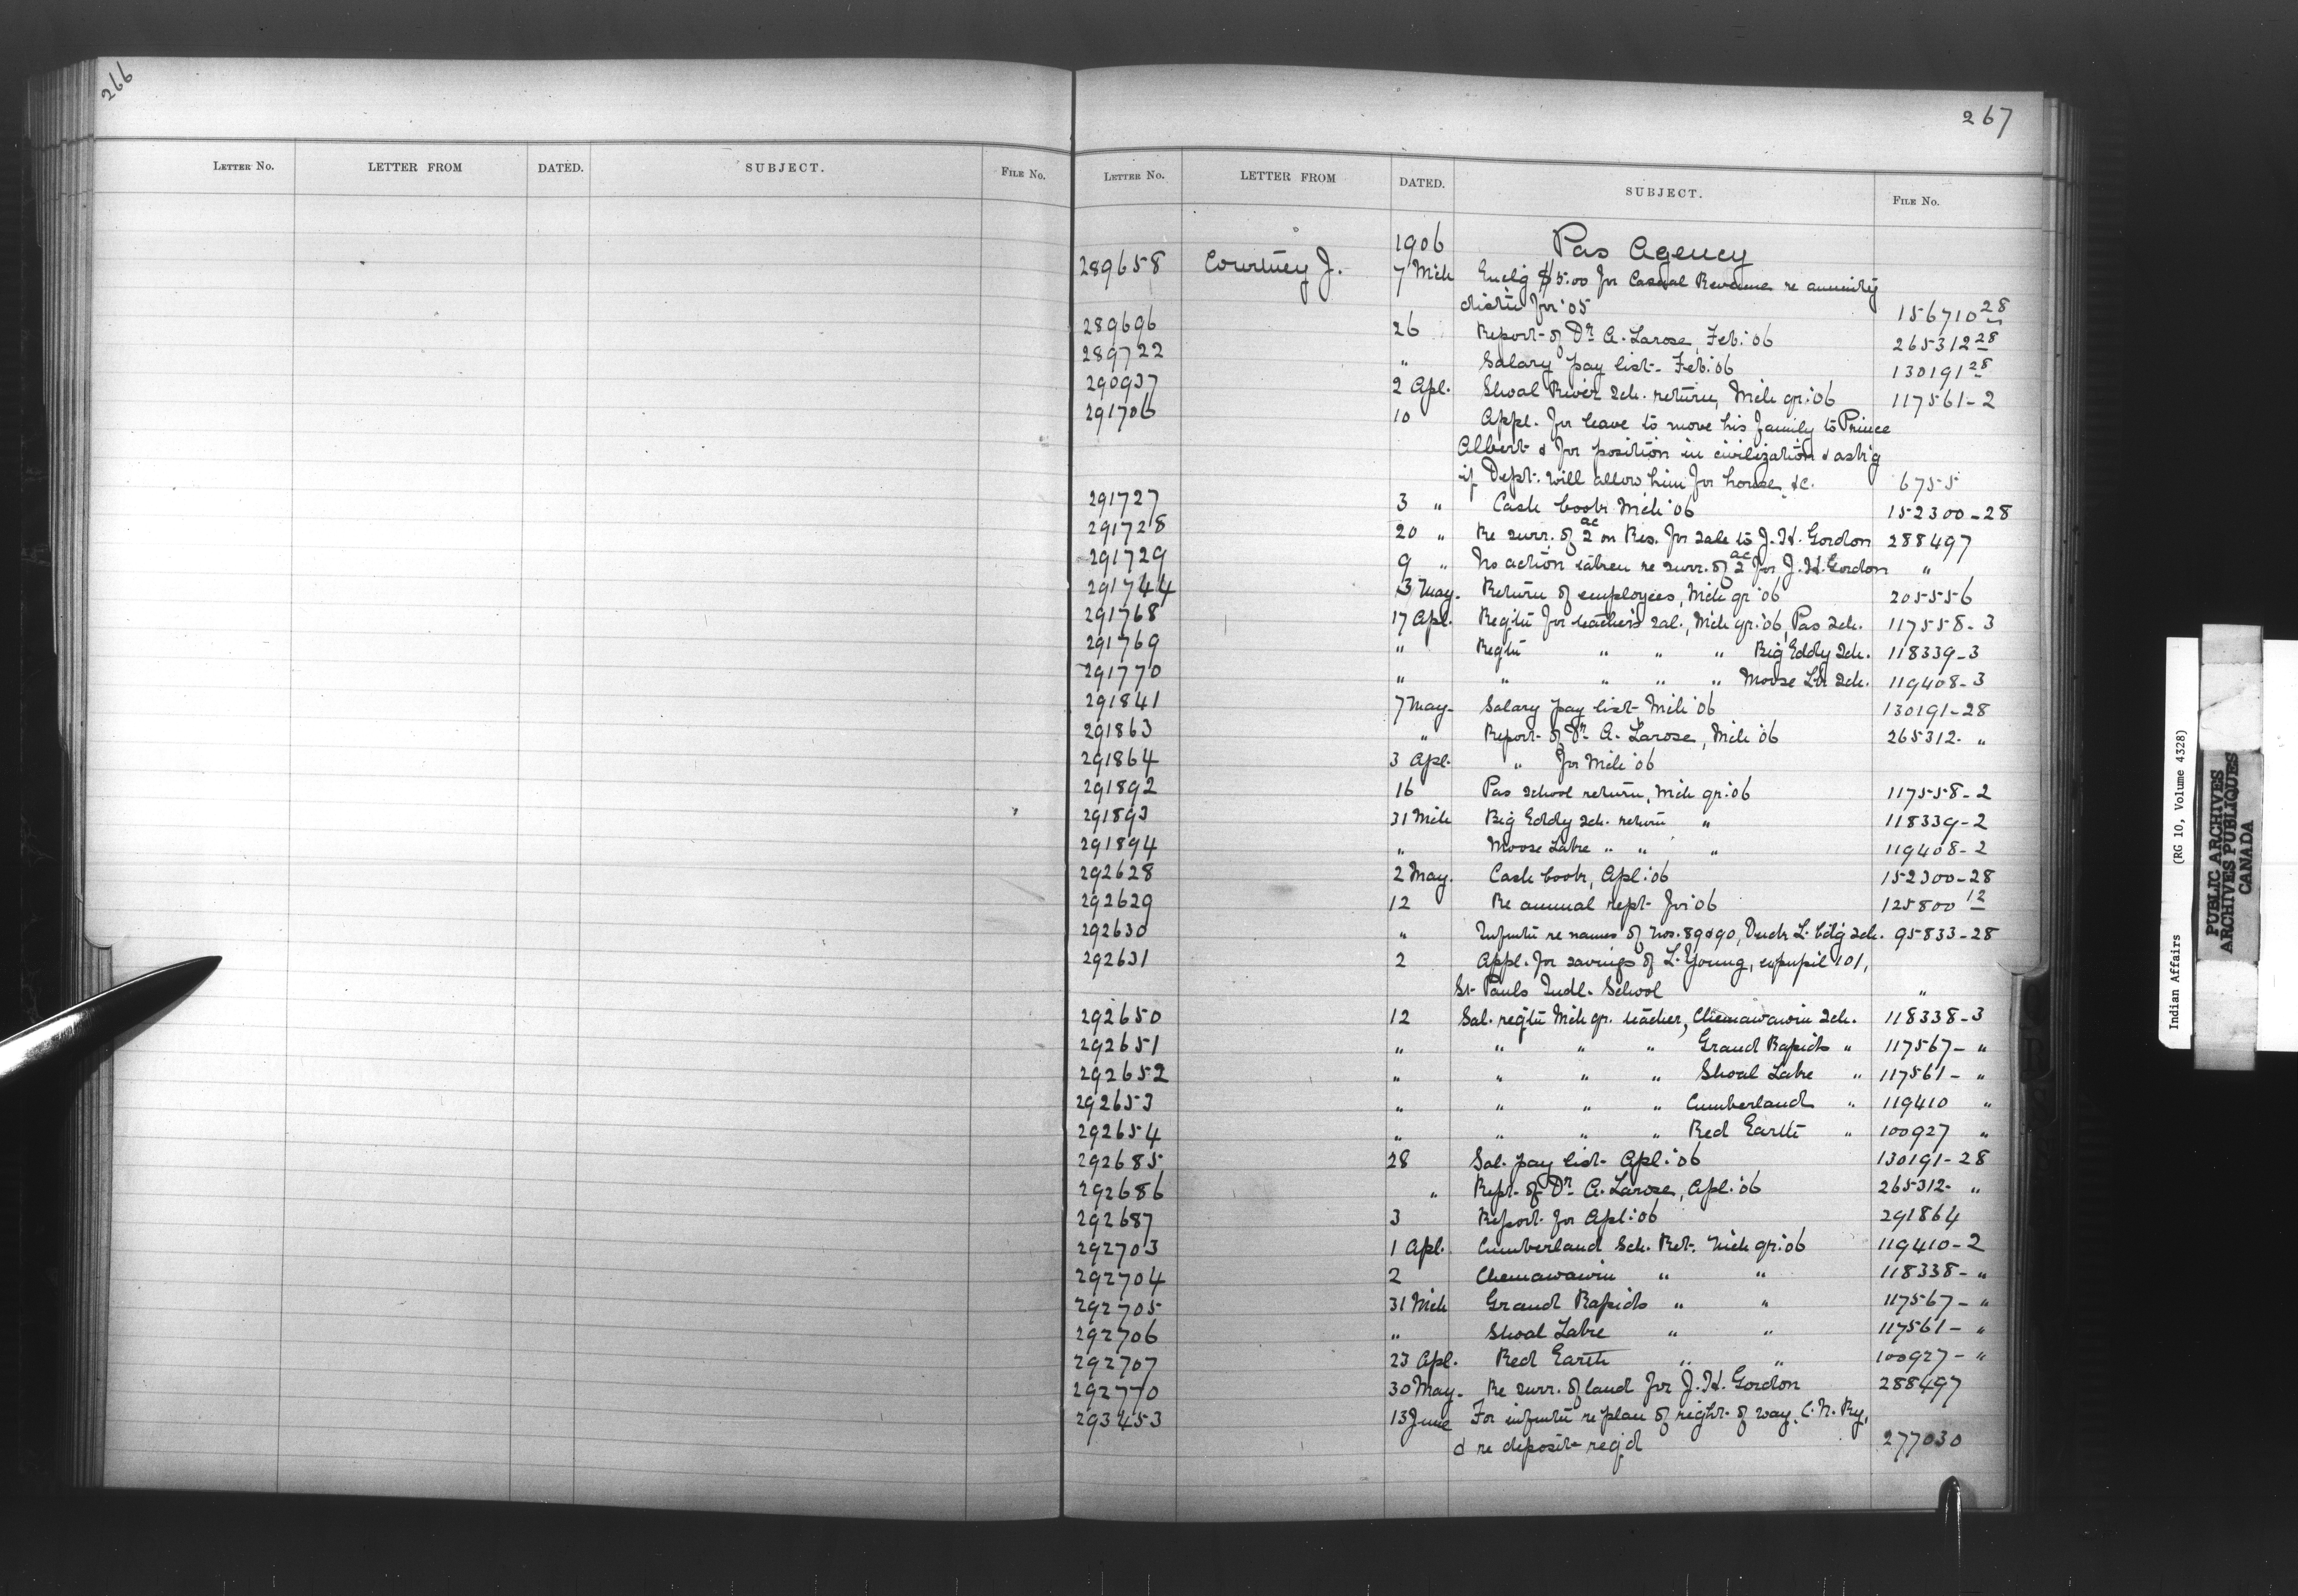 266
LETTER NO. LETTER FROM DATED. SUBJECT. FILE No.
267
LETTER No. LETTER FROM DATED. SUBJECT. FILE No.
1906 Pas Agency
289658 Courtney J. 7 Mch Enclg $5.00 for Casual Revenue re annuity
distn for '05 156710 28
289696 26 Report of Dr. A. Larose, Feb. '06 265312 28
289722 " Salary pay list Feb. '06 130191 28
290937 2 Apl. Shoal River Sch. return, Mch qr. '06 117561-2
291706 10 Appl. for leave to move his family to Prince
Albert & for position in civilization & ask'g
if Dept. will allow him for house &c. 6755
291727 3 " Cash book Mch '06 152300-28
291728 20 " Re surr. of 2 ac on Res. for sale to J. H. Gordon 288497
291729 9 " No action taken re surr. of 2 ac for J. H. Gordon "
291744 3 May. Return of employees, Mch qr '06 205556
291768 17 Apl. Reqtn for teacher's sal., Mch qr. '06, Pas Sch. 117558-3
291769 " Reqtn " " " Big Eddy Sch. 118339-3
291770 " " " " " Moose Lk Sch. 119408-3
291841 7 May. Salary pay list Mch '06 130191-28
291863 " Report of Dr A. Larose, Mch '06 265312- "
291864 3 Apl. " for Mch '06
291892 16 Pas School return, Mch qr. '06 117558-2
291893 31 Mch Big Eddy Sch. return " 118339-2
291894 " Moose Lake " " " 119408-2
292628 2 May. Cash book, Apl. '06 152300-28
292629 12 Re annual rept. for '06 125800 12
292630 " Infmtn re names of Nos. 89 & 90, Duck L. bdg Sch. 95833-28
292631 2 Appl. for savings of L. Young, expupil 101,
St. Pauls Indl. School "
292650 12 Sal. reqtn Mch qr. teacher, Chemawawin Sch. 118338-3
292651 " " " " Grand Rapids " 117567- "
292652 " " " " Shoal Lake " 117561- "
292653 " " " " Cumberland " 119410 "
292654 " " " " Red Earth " 100927 "
292685 28 Sal. pay list Apl. '06 130191-28
292686 " Rept. of Dr A. Larose, Apl. '06 265312- "
292687 3 Report for Apl. '06 291864
292703 1 Apl. Cumberland Sch. Ret. Mch qr. '06 119410-2
292704 2 Chemawawin " " 118338- "
292705 31 Mch Grand Rapids " " 117567- "
292706 " Shoal Lake " " 117561- "
292707 23 Apl. Red Earth " " 100927- "
292770 30 May. Re surr. of land for J. H. Gordon 288497
293453 13 June For infmtn re plan of right of way, C. N. Ry,
& re deposit req'd 277030
Indian Affairs (RG 10, Volume 4328)
PUBLIC ARCHIVES
ARCHIVES PUBLIQUES
CANADA